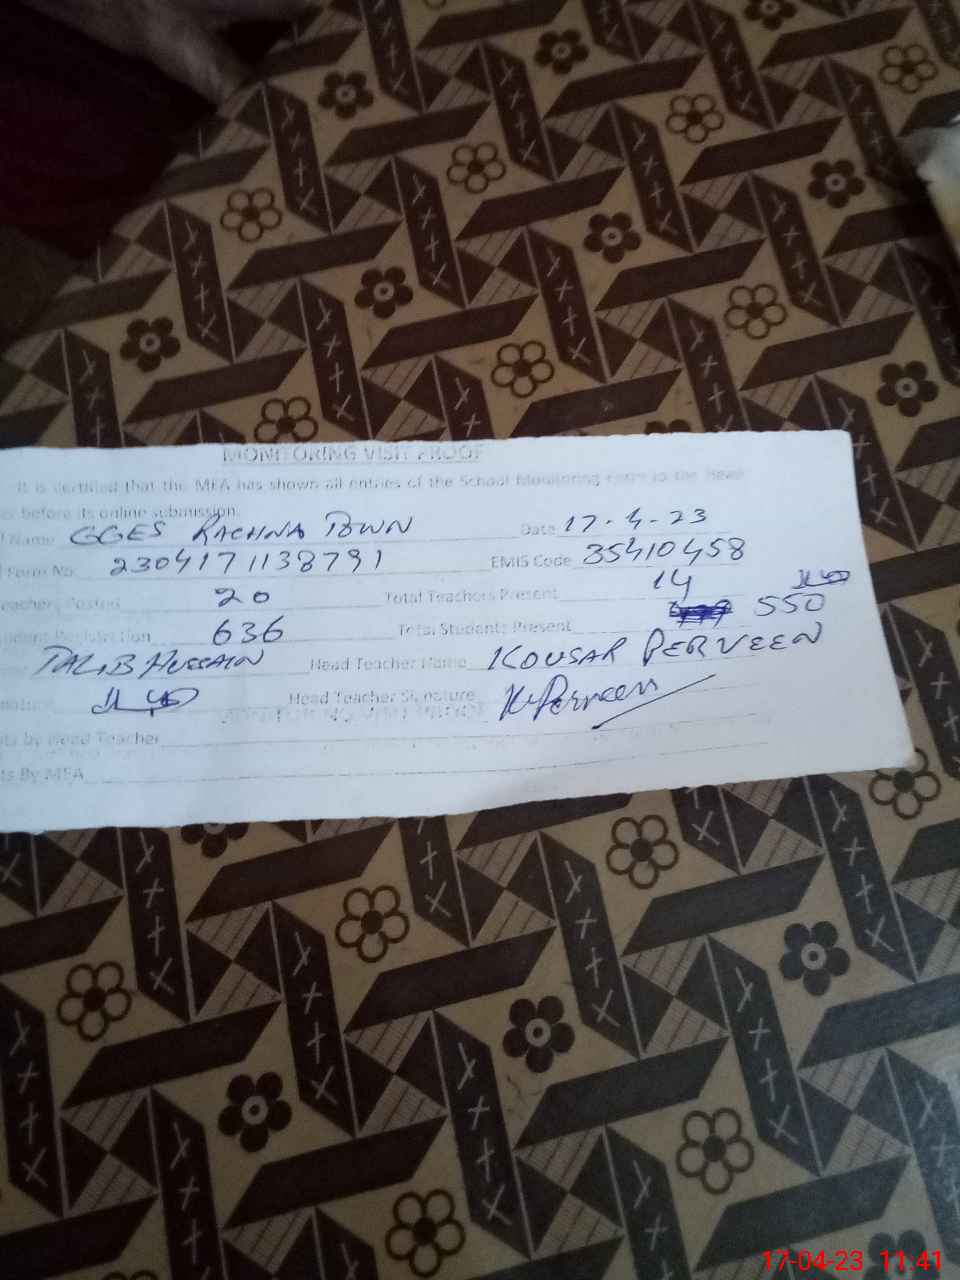 MONITORING VISIT PROOF
It is certified that the MEA has shown all entries of the School Monitoring Form to the Head
before its online submission.
Name GGES RACHNA TOWN Date 17-4-23
Form No. 2304171138791 EMIS Code 35410458
Teachers Posted 20 Total Teachers Present 14
Student Registration 636 Total Students Present 550
TALIB HUSSAIN Head Teacher Name KOUSAR PERVEEN
Head Teacher Signature K. Perveen
by Head Teacher
ts By MEA
17-04-23 11:41